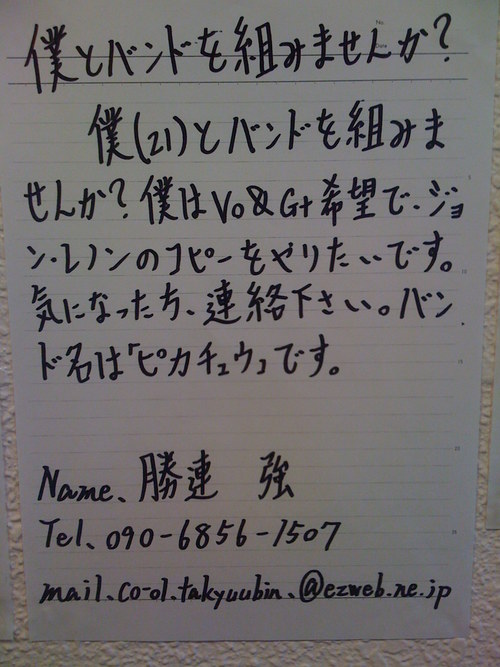 僕とバンドを組みませんか?
僕(21)とバンドを組みま
せんか?僕はVo&Gt希望で、ジョ
ン・レノンのコピーをやりたいです。
気になったら、連絡下さい。バン
ド名は「ピカチュウ」です。
Name、勝連 強
Tel、090-6856-1507
mail、co-ol.takyuubin、@ezweb.ne.jp